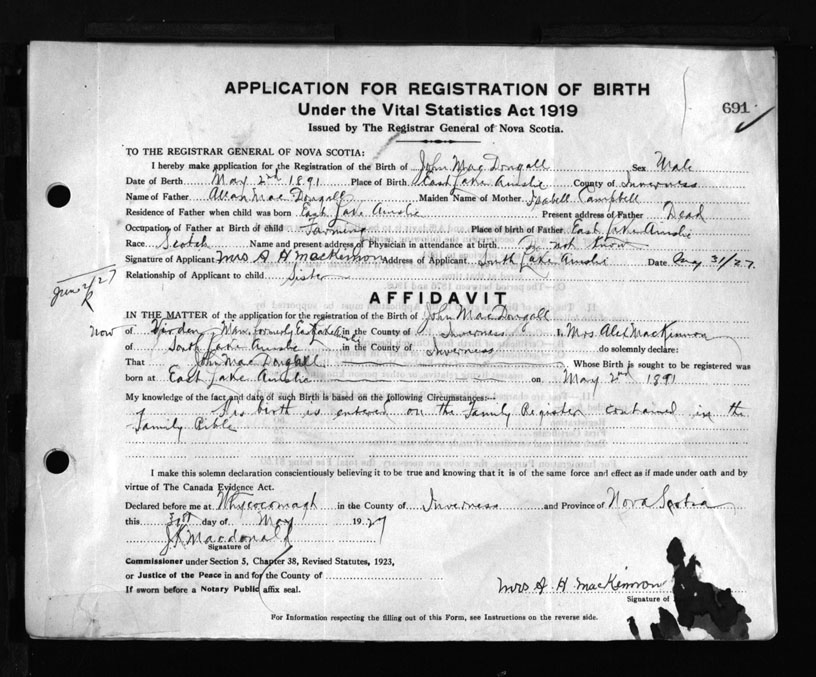 APPLICATION FOR REGISTRATION OF BIRTH
Under the Vital Statistics Act 1919
691
Issued by The Registrar General of Nova Scotia.
TO THE REGISTRAR GENERAL OF NOVA SCOTIA:
I hereby make application for the Registration of the Birth of John MacDougall Sex Male
Date of Birth May 2nd 1891 Place of Birth East Lake Ainslie County of Inverness
Name of Father Allan MacDougall Maiden Name of Mother Isabell Campbell
Residence of Father when child was born East Lake Ainslie Present address of Father Dead
Occupation of Father at Birth of child Farming Place of birth of Father East Lake Ainslie
Race Scotch Name and present address of Physician in attendance at birth do not know
Signature of Applicant Mrs A H MacKinnon Address of Applicant South Lake Ainslie Date May 31/27
Relationship of Applicant to child Sister
June 2/27
AFFIDAVIT
IN THE MATTER of the application for the registration of the Birth of John MacDougall
now of Virden Man. formerly East Lake Ainslie in the County of Inverness I, Mrs. Alex MacKinnon
of South Lake Ainslie in the County of Inverness do solemnly declare:
That John MacDougall Whose Birth is sought to be registered was
born at East Lake Ainslie on May 2nd 1891
My knowledge of the fact and date of such Birth is based on the following Circumstances:—
His birth is entered on the Family Register contained in the
Family Bible
I make this solemn declaration conscientiously believing it to be true and knowing that it is of the same force and effect as if made under oath and by
virtue of The Canada Evidence Act.
Declared before me at Whycocomagh in the County of Inverness and Province of Nova Scotia
this 31st day of May 1927
J. K. Macdonald
Signature of
Commissioner under Section 5, Chapter 38, Revised Statutes, 1923,
or Justice of the Peace in and for the County of
If sworn before a Notary Public affix seal.
Mrs A. H. MacKinnon
Signature of
For Information respecting the filling out of this Form, see Instructions on the reverse side.